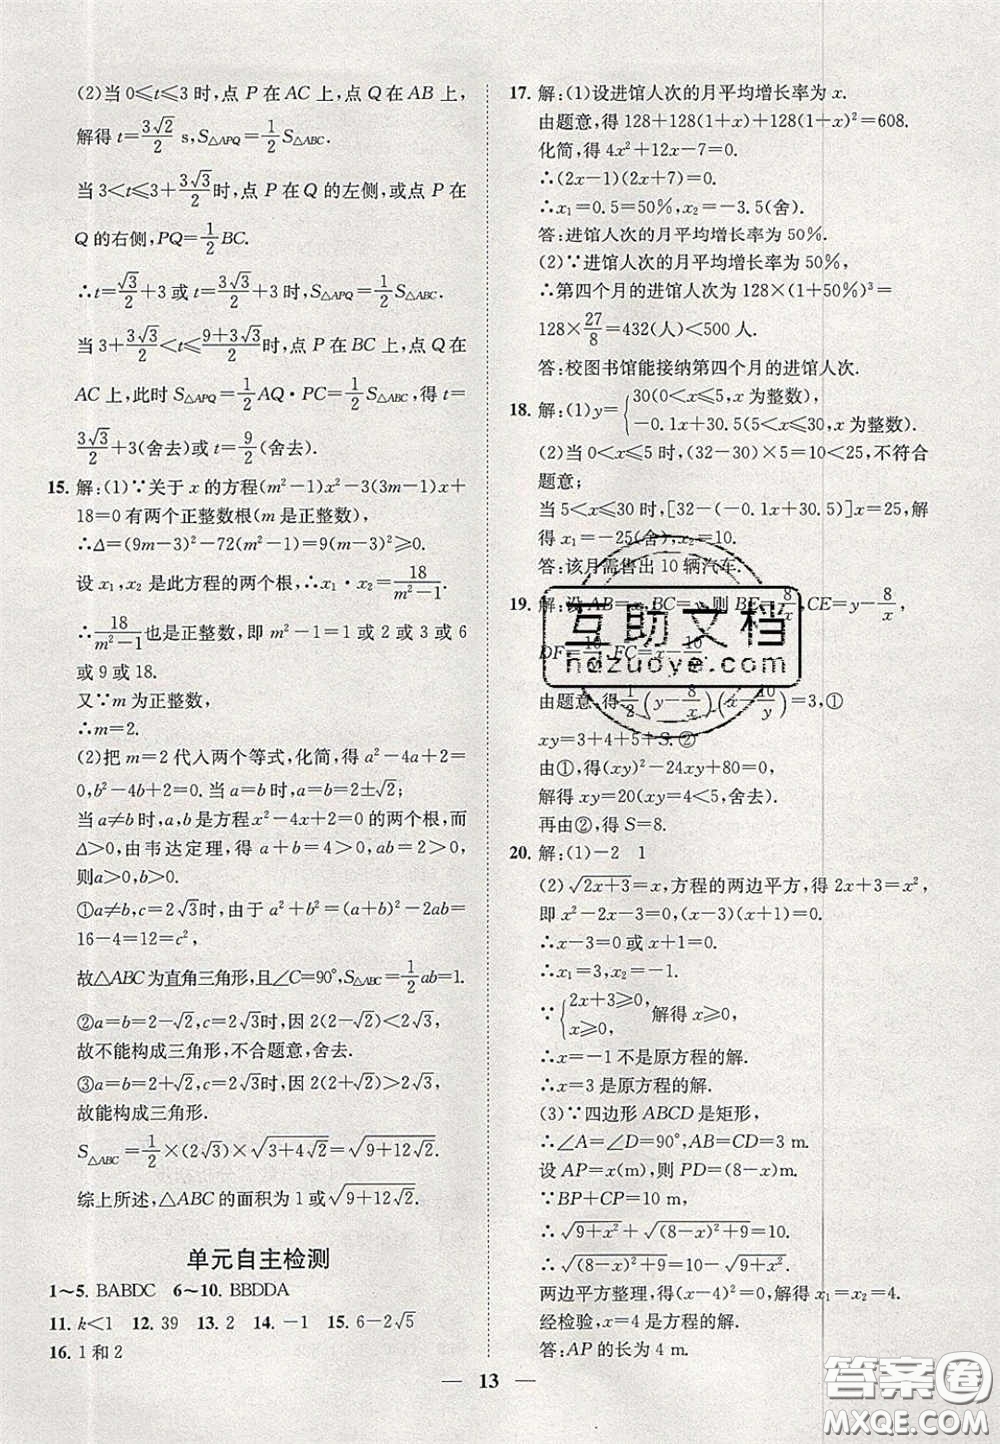 (2)当0≤t≤3时,点P在AC上,点Q在AB上,
解得t=3√2/2 s,S△APQ=1/2S△ABC.
当3<t≤3+3√3/2时,点P在Q的左侧,或点P在
Q的右侧,PQ=1/2BC.
∴t=√3/2+3或t=3√3/2+3时,S△APQ=1/2S△ABC.
当3+3√3/2<t≤(9+3√3)/2时,点P在BC上,点Q在
AC上,此时S△APQ=1/2AQ·PC=1/2S△ABC,得t=
3√3/2+3(舍去)或t=9/2(舍去).
15. 解:(1)∵关于x的方程(m²-1)x²-3(3m-1)x+
18=0有两个正整数根(m是正整数),
∴Δ=(9m-3)²-72(m²-1)=9(m-3)²≥0.
设x₁,x₂是此方程的两个根,∴x₁·x₂=18/(m²-1).
∴18/(m²-1)也是正整数,即m²-1=1或2或3或6
或9或18.
又∵m为正整数,
∴m=2.
(2)把m=2代入两个等式,化简,得a²-4a+2=
0,b²-4b+2=0.当a=b时,a=b=2±√2;
当a≠b时,a,b是方程x²-4x+2=0的两个根,而
Δ>0,由韦达定理,得a+b=4>0,ab=2>0.
则a>0,b>0.
①a≠b,c=2√3时,由于a²+b²=(a+b)²-2ab=
16-4=12=c²,
故△ABC为直角三角形,且∠C=90°,S△ABC=1/2ab=1.
②a=b=2-√2,c=2√3时,因2(2-√2)<2√3,
故不能构成三角形,不合题意,舍去.
③a=b=2+√2,c=2√3时,因2(2+√2)>2√3,
故能构成三角形.
S△ABC=1/2×(2√3)×√(3+4√2)=√(9+12√2).
综上所述,△ABC的面积为1或√(9+12√2).
单元自主检测
1~5. BABDC 6~10. BBDDA
11. k<1 12. 39 13. 2 14. -1 15. 6-2√5
16. 1和2
17. 解:(1)设进馆人次的月平均增长率为x.
由题意,得128+128(1+x)+128(1+x)²=608.
化简,得4x²+12x-7=0.
∴(2x-1)(2x+7)=0.
∴x₁=0.5=50%,x₂=-3.5(舍).
答:进馆人次的月平均增长率为50%.
(2)∵进馆人次的月平均增长率为50%,
∴第四个月的进馆人次为128×(1+50%)³=
128×27/8=432(人)<500人.
答:校图书馆能接纳第四个月的进馆人次.
18. 解:(1)y={30(0<x≤5,x为整数),
-0.1x+30.5(5<x≤30,x为整数).
(2)当0<x≤5时,(32-30)×5=10<25,不符合
题意;
当5<x≤30时,[32-(-0.1x+30.5)]x=25,解
得x₁=-25(舍),x₂=10.
答:该月需售出10辆汽车.
19. 解:设AB=x,BC=y,则BE=8/x,CE=y-8/x,
DF=10/y,FC=x-10/y.
由题意,得1/2(y-8/x)(x-10/y)=3,①
xy=3+4+5+S.②
由①,得(xy)²-24xy+80=0.
解得xy=20(xy=4<5,舍去).
再由②,得S=8.
20. 解:(1)-2 1
(2)√(2x+3)=x,方程的两边平方,得2x+3=x²,
即x²-2x-3=0.(x-3)(x+1)=0.
∴x-3=0或x+1=0.
∴x₁=3,x₂=-1.
∵{2x+3≥0,
x≥0, 解得x≥0,
∴x=-1不是原方程的解.
∴x=3是原方程的解.
(3)∵四边形ABCD是矩形,
∴∠A=∠D=90°,AB=CD=3 m.
设AP=x(m),则PD=(8-x)m.
∵BP+CP=10 m,
∴√(9+x²)+√((8-x)²+9)=10.
∴√((8-x)²+9)=10-√(9+x²).
两边平方整理,得(x-4)²=0.解得x₁=x₂=4.
经检验,x=4是方程的解.
答:AP的长为4 m.
13
互助文档
hdzuoye.com
答案圈
MXQE.COM